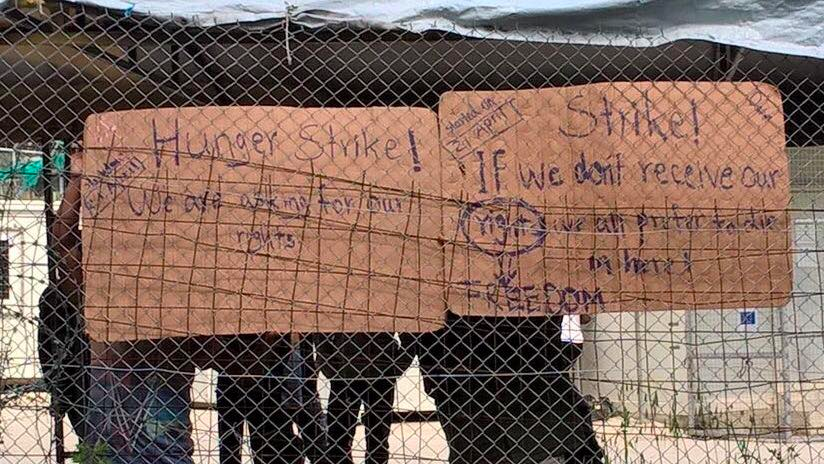 Hunger Strike!
We are asking for our
rights
Started on
21 April
Strike!
If we don't receive our
right we all prefer to die
in here!
FREEDOM